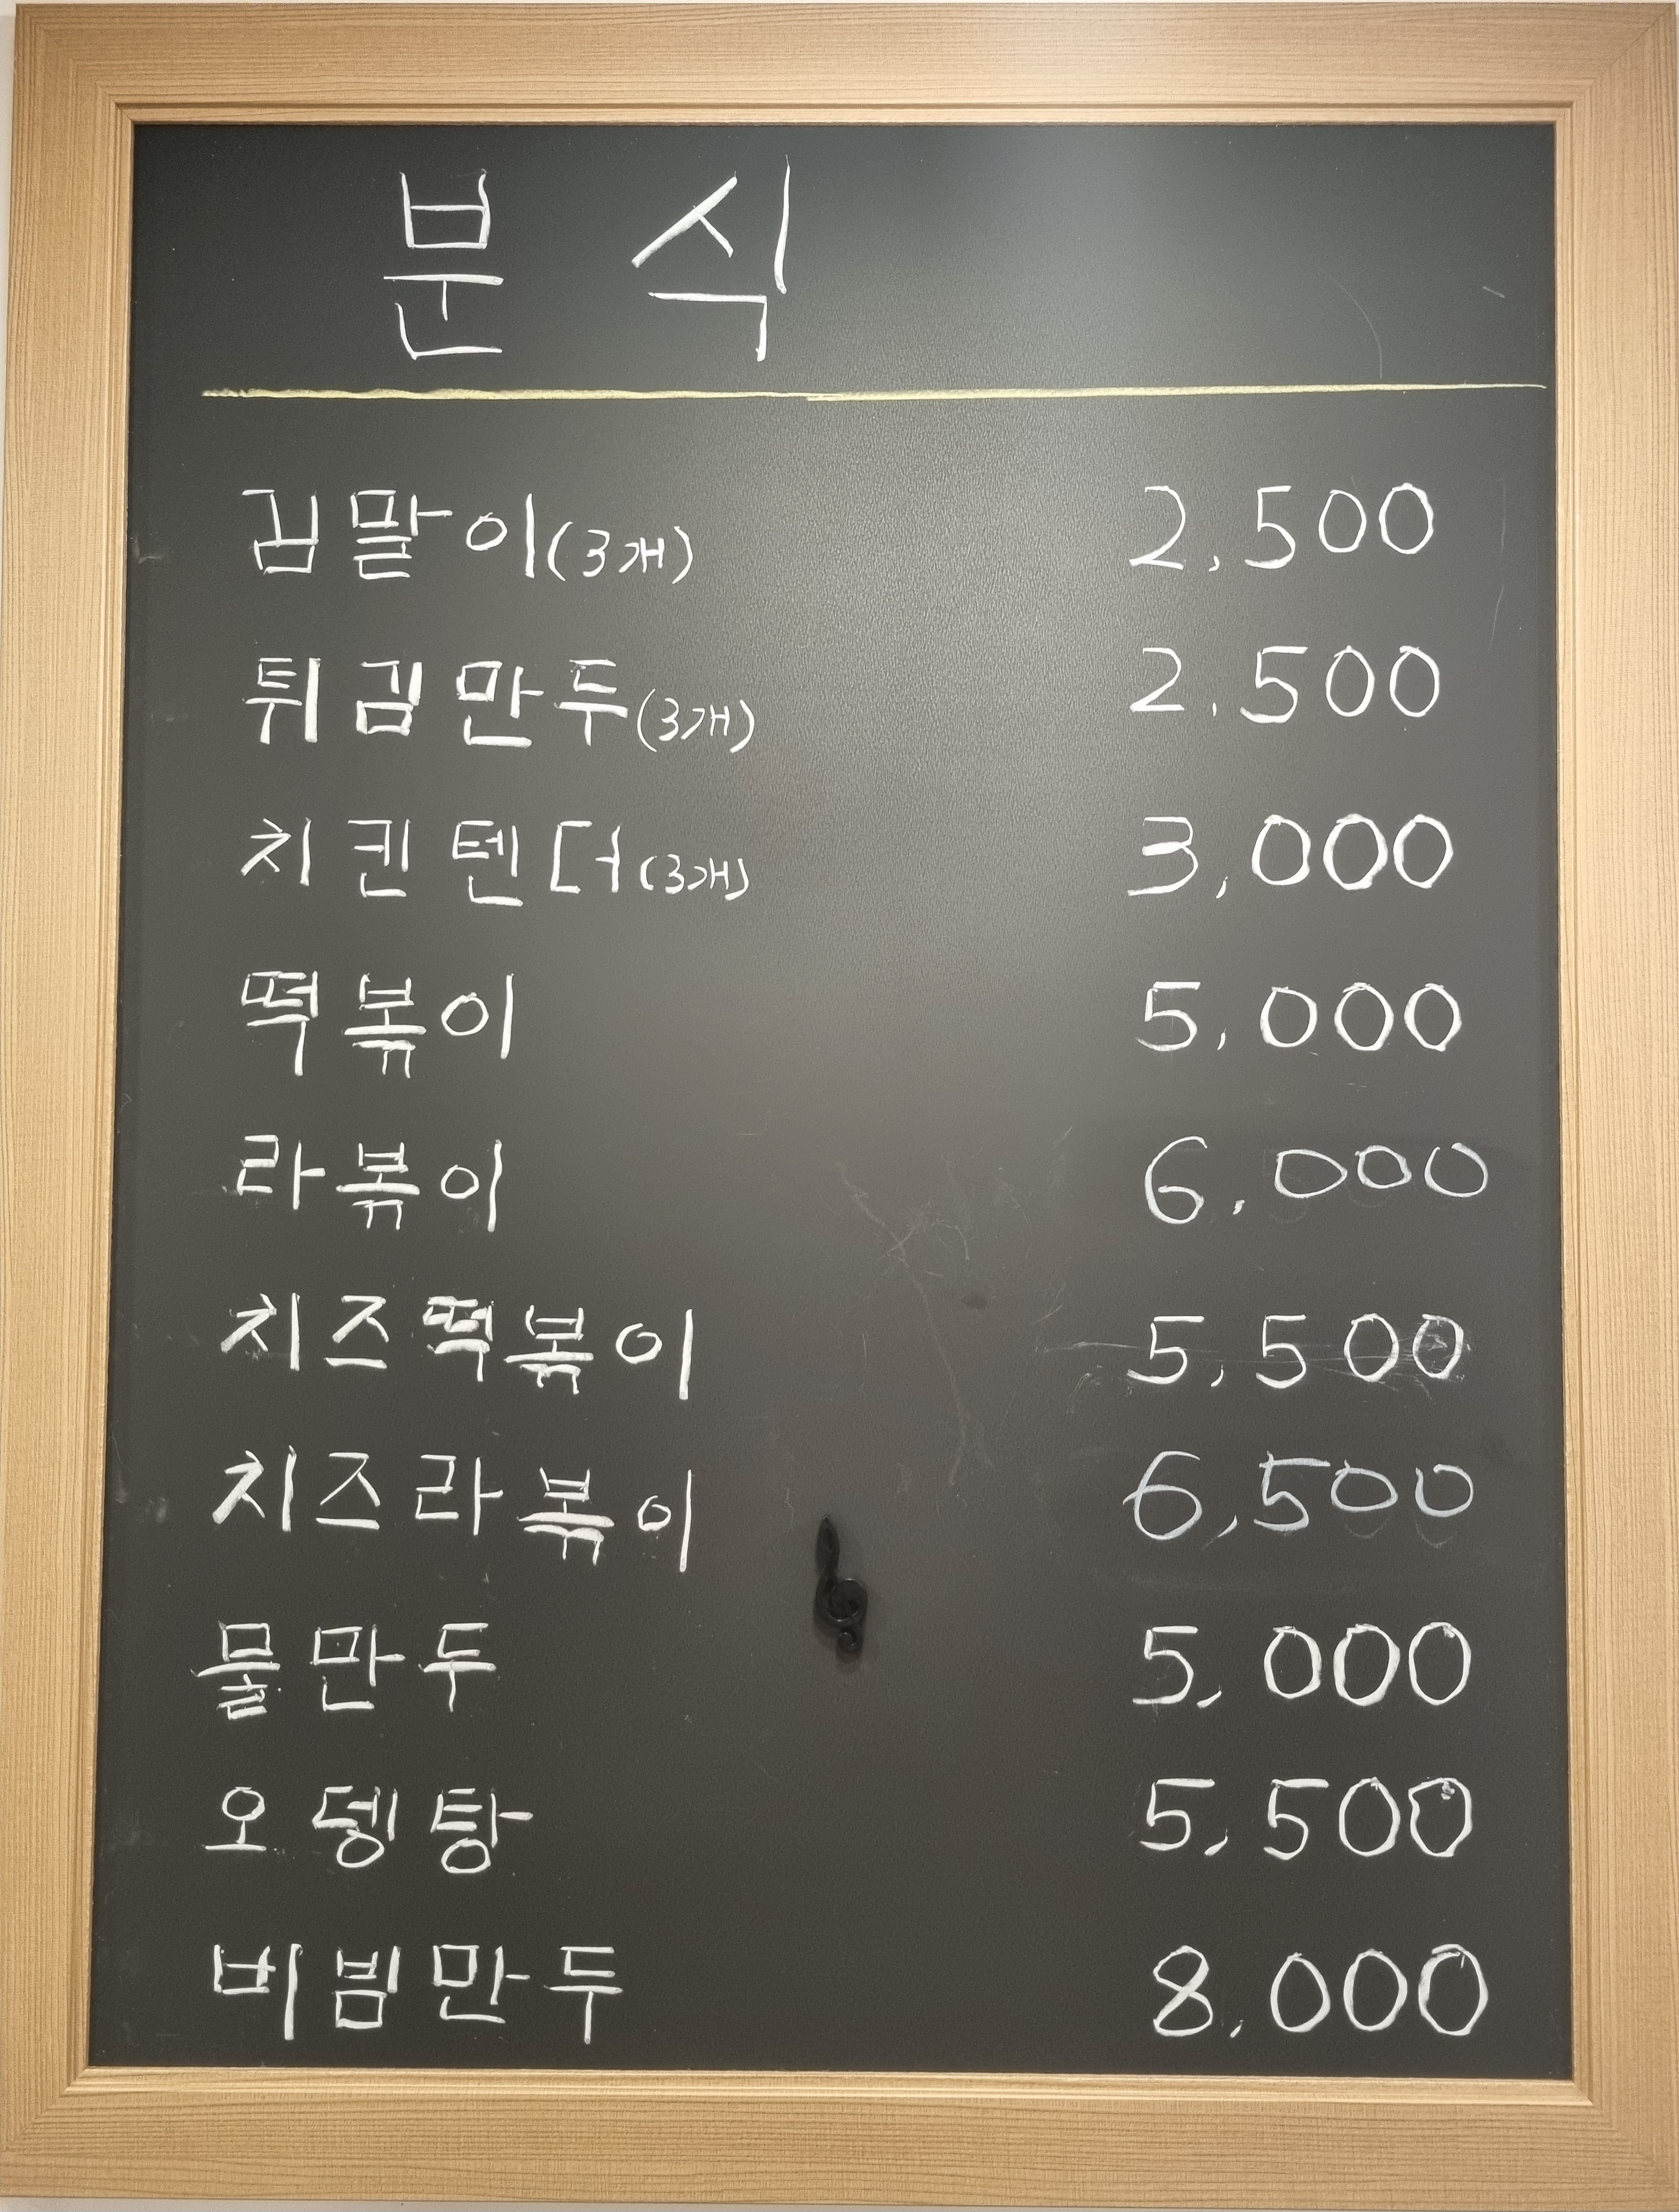 분식
김말이(3개) 2,500
튀김만두(3개) 2,500
치킨텐더(3개) 3,000
떡볶이 5,000
라볶이 6,000
치즈떡볶이 5,500
치즈라볶이 6,500
물만두 5,000
오뎅탕 5,500
비빔만두 8,000